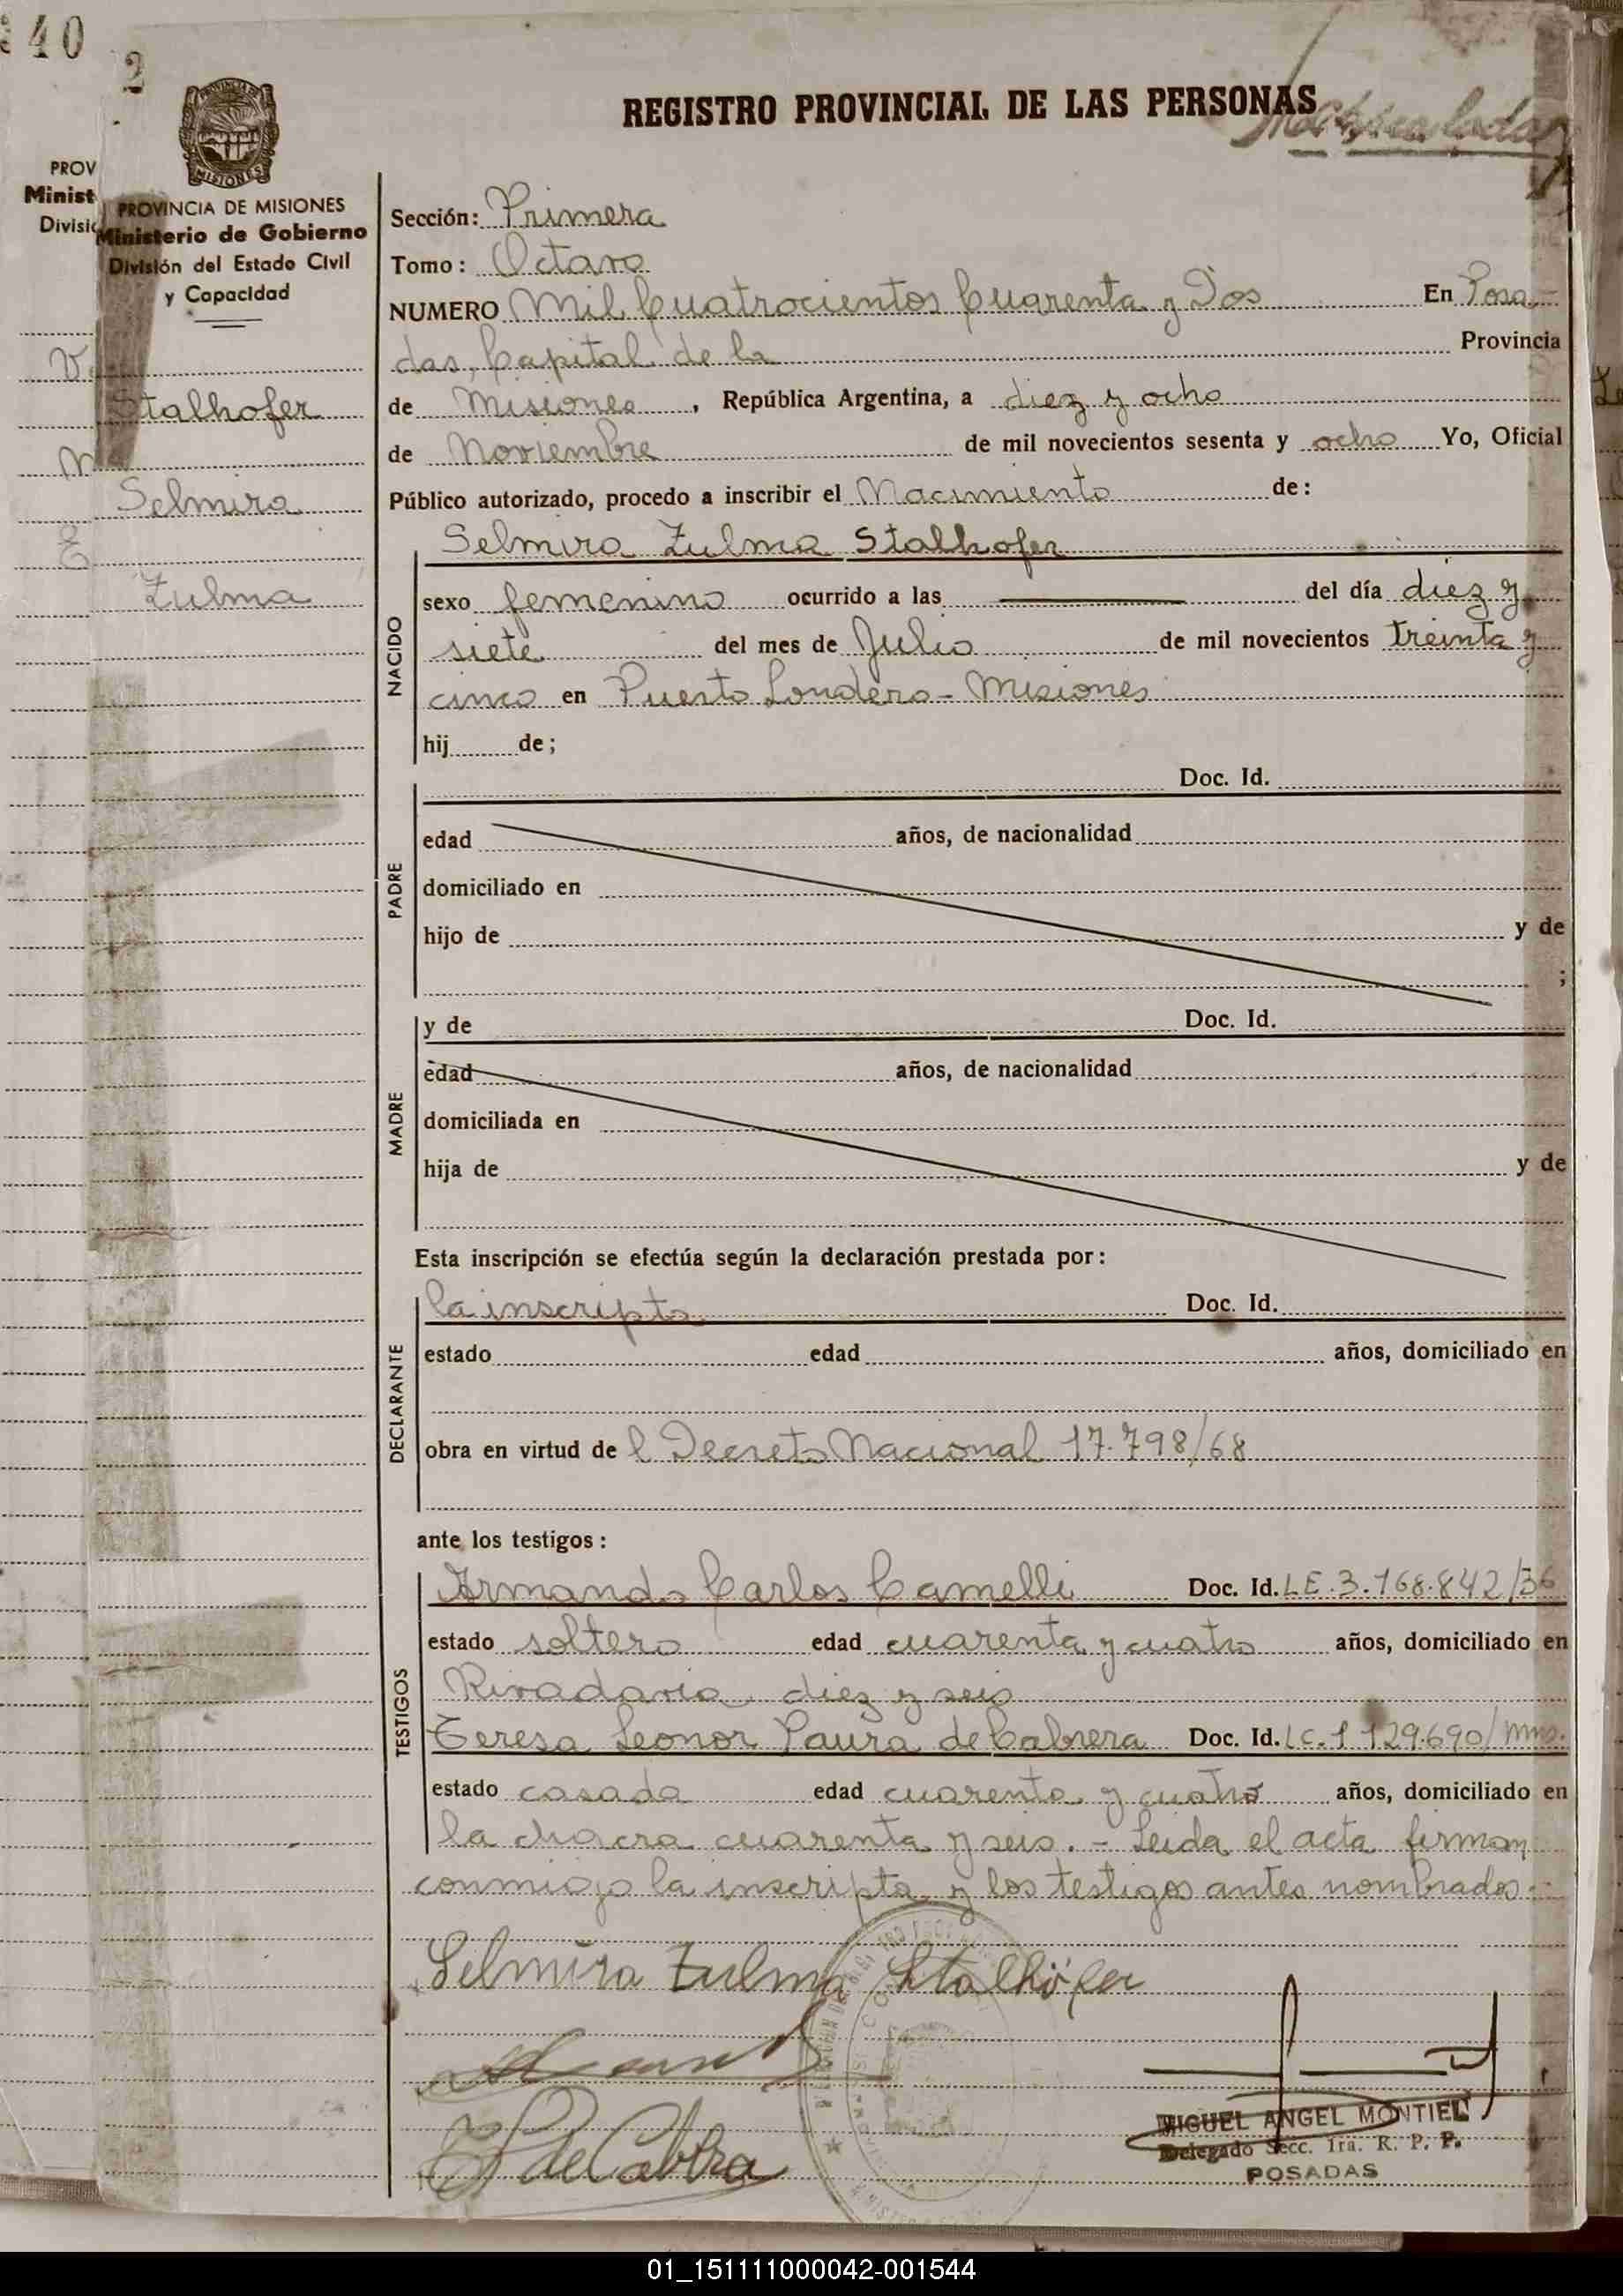 40
2
REGISTRO PROVINCIAL DE LAS PERSONAS
PROVINCIA DE MISIONES
Ministerio de Gobierno
División del Estado Civil
y Capacidad
PROV
Minist
Divisió
Stalhofer
Selmira
Zulma
Sección: Primera
Tomo: Octavo
NUMERO Mil Cuatrocientos Cuarenta y Dos En Posa-
das, Capital de la Provincia
de Misiones, República Argentina, a diez y ocho
de Noviembre de mil novecientos sesenta y ocho Yo, Oficial
Público autorizado, procedo a inscribir el Nacimiento de:
Selmira Zulma Stalhofer
NACIDO
sexo femenino ocurrido a las del día diez y
siete del mes de Julio de mil novecientos treinta y
cinco en Puerto Londero - Misiones
hij de;
PADRE
Doc. Id.
edad años, de nacionalidad
domiciliado en
hijo de y de
;
MADRE
y de Doc. Id.
edad años, de nacionalidad
domiciliada en
hija de y de
Esta inscripción se efectúa según la declaración prestada por:
DECLARANTE
la inscripta Doc. Id.
estado edad años, domiciliado en
obra en virtud de l Decreto Nacional 17.798/68
ante los testigos:
TESTIGOS
Armando Carlos Camelli Doc. Id. L.E. 3.168.842/36
estado soltero edad cuarenta y cuatro años, domiciliado en
Rivadavia diez y seis
Teresa Leonor Paura de Cabrera Doc. Id. L.C. 1 129.690/Mns.
estado casada edad cuarenta y cuatro años, domiciliado en
la chacra cuarenta y seis. - Leida el acta firman
conmigo la inscripta y los testigos antes nombrados.-
Selmira Zulma Stalhöfer
de Cabrera
MIGUEL ANGEL MONTIEL
Delegado Secc. 1ra. R. P. P.
POSADAS
01_151111000042-001544